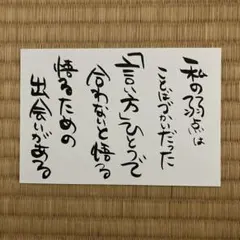 私の弱点は
ことばづかいだった
「言い方」ひとつで
合わないと悟る
悟るための
出会いがある